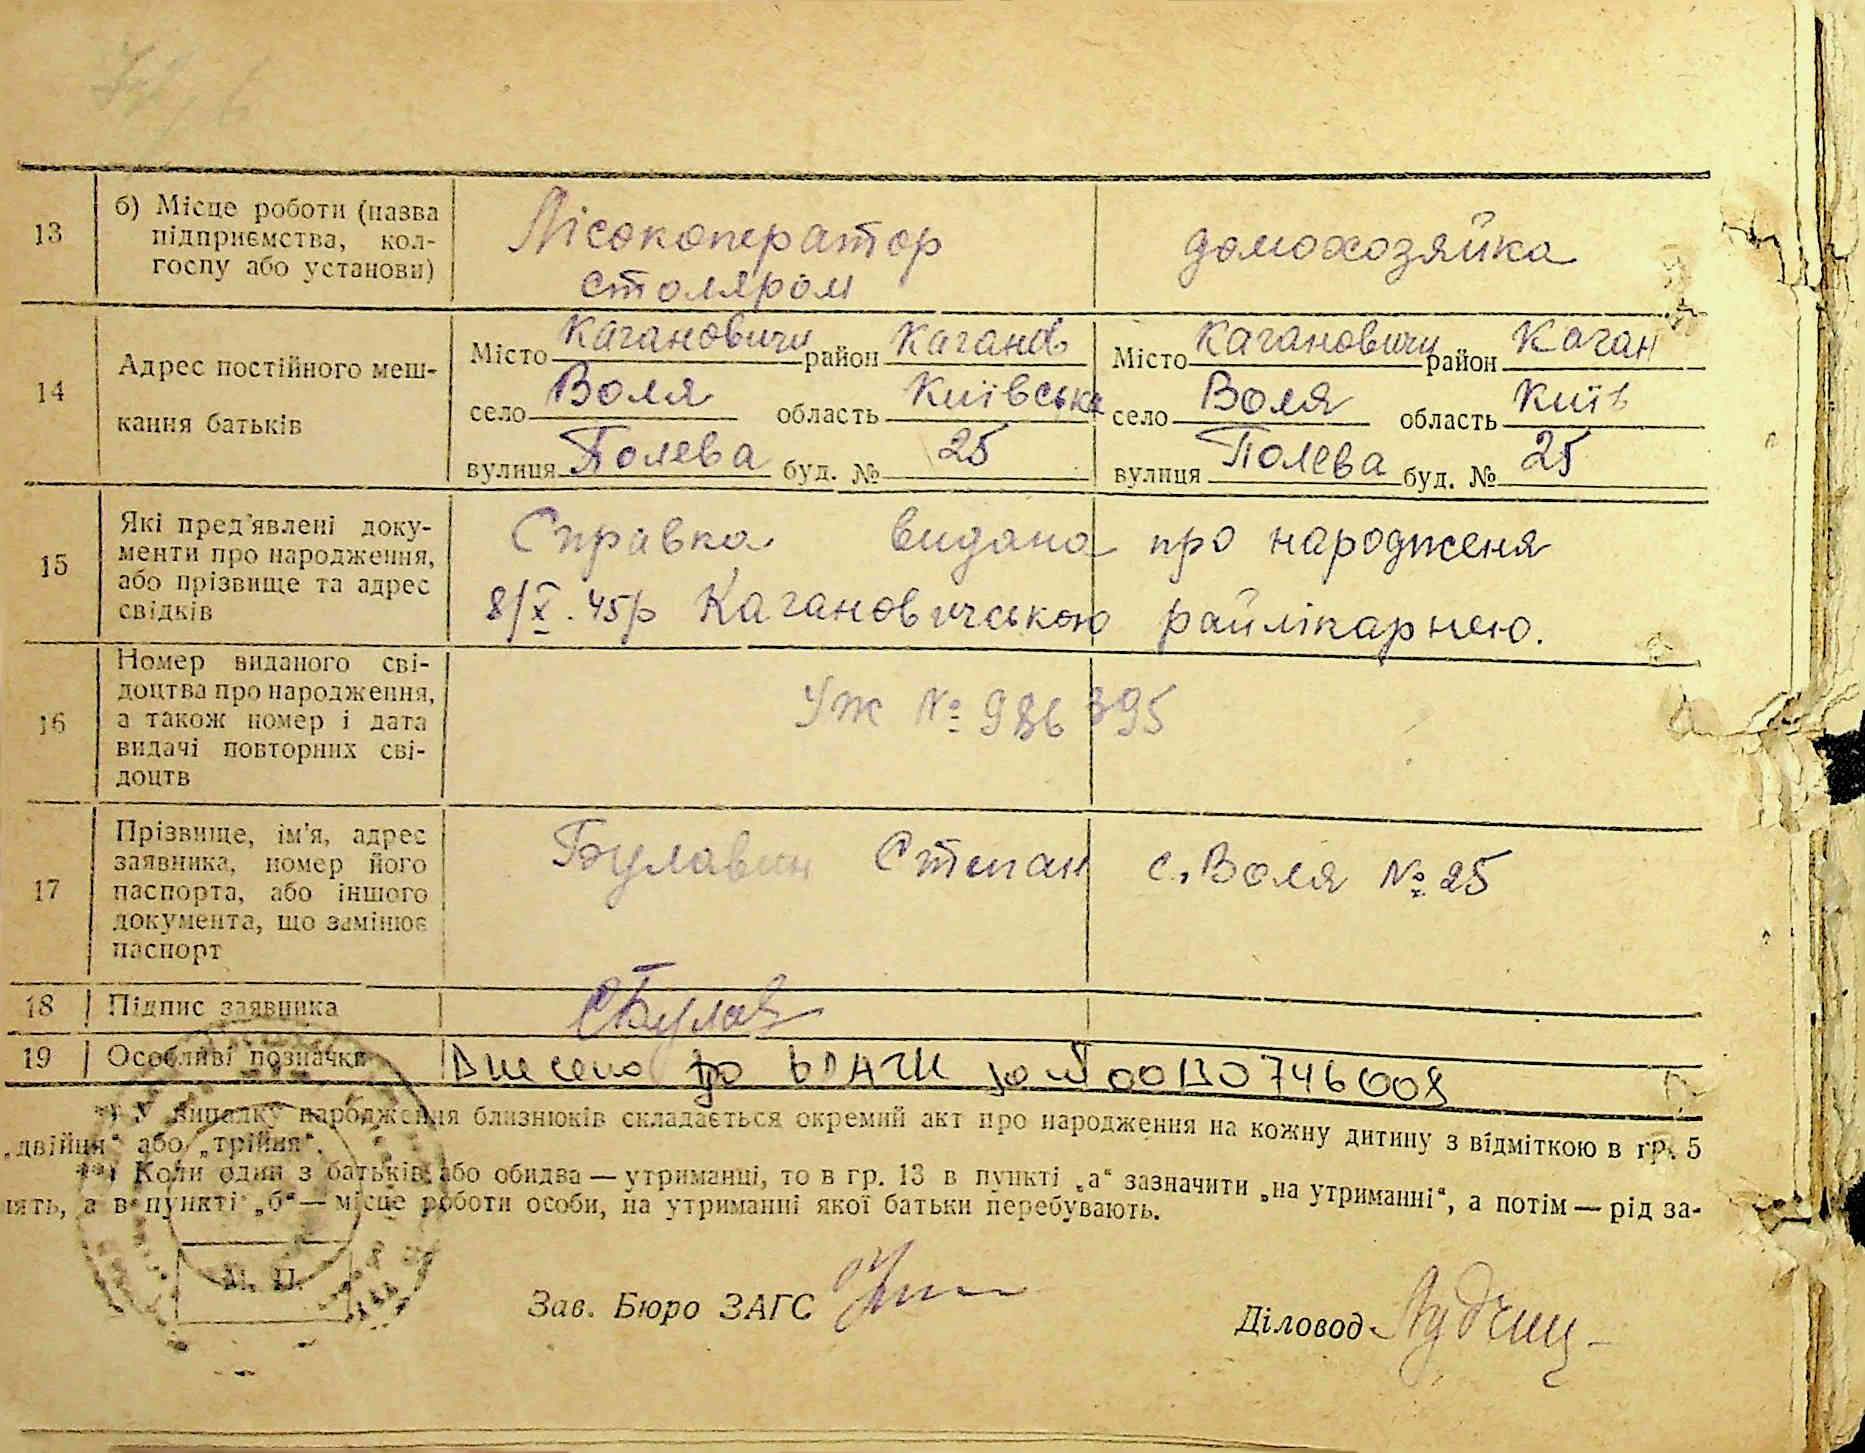 13
б) Місце роботи (назва
підприємства, кол-
госпу або установи)
Лісокоператор
столяром
домохозяйка
14
Адрес постійного меш-
кання батьків
Місто Кагановичи район Каганов
село Воля область Київська
вулиця Полева буд. № 25
Місто Кагановичи район Каган
село Воля область Київ
вулиця Полева буд. № 25
15
Які пред'явлені доку-
менти про народження,
або прізвище та адрес
свідків
Справка видана про народженя
8/X. 45р Кагановичською райлікарнею.
16
Номер виданого сві-
доцтва про народження,
а також номер і дата
видачі повторних сві-
доцтв
УЖ № 986395
17
Прізвище, ім'я, адрес
заявника, номер його
паспорта, або іншого
документа, що замінює
паспорт
Булавин Степан с. Воля № 25
18
Підпис заявника
СБулав
19
Особливі позначки
Внесено до 00130746008
*) У випадку народження близнюків складається окремий акт про народження на кожну дитину з відміткою в гр. 5
„двійня“ або „трійня“.
**) Коли один з батьків або обидва — утриманці, то в гр. 13 в пункті „а“ зазначити „на утриманні“, а потім — рід за-
нять, а в пункті „б“ — місце роботи особи, на утриманні якої батьки перебувають.
М. П.
Зав. Бюро ЗАГС
Діловод